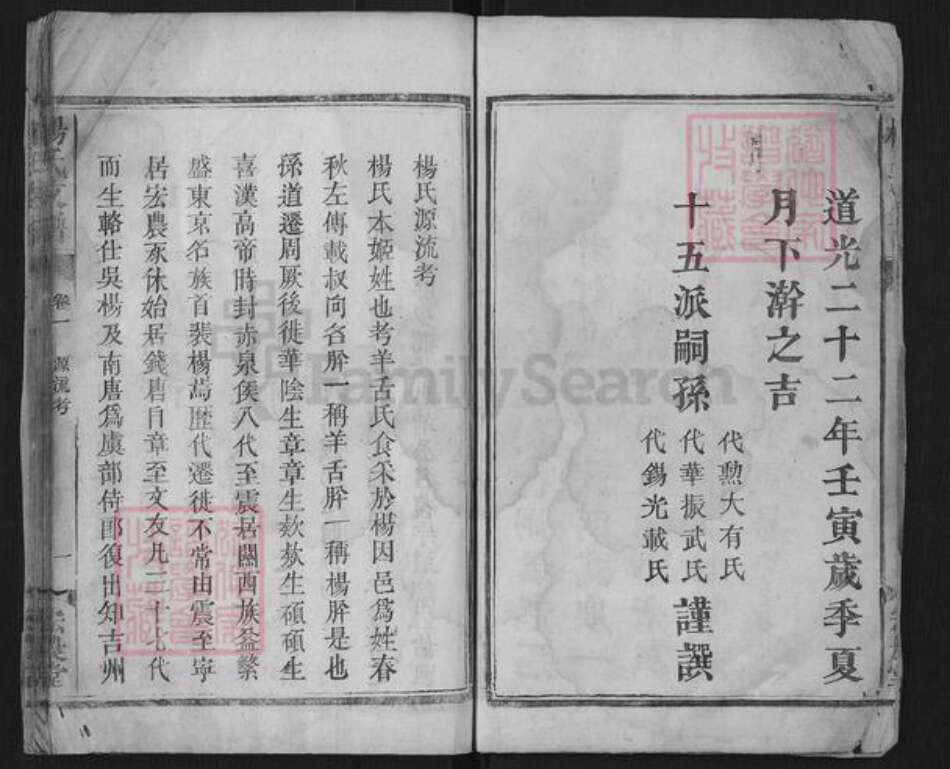 道光二十二年壬寅歲季夏
月下澣之吉
十五派嗣孫
代勲大有氏
代華振武氏
代錫光載氏
謹譔
楊氏源流考
楊氏本姬姓也考羊舌氏食采於楊因邑爲姓春
秋左傳載叔向名肸一稱羊舌肸一稱楊肸是也
孫道遷周厥後徙華陰生章章生欸欸生碩碩生
喜漢高帝時封赤泉侯八代至震居關西族益繁
盛東京名族首裴楊焉歷代遷徙不常由震至寧
居宏農永休始居錢唐自章至文友凡二十七代
而生輅仕吳楊及南唐爲虞部侍郎復出知吉州
卷一
源流考
一
FamilySearch